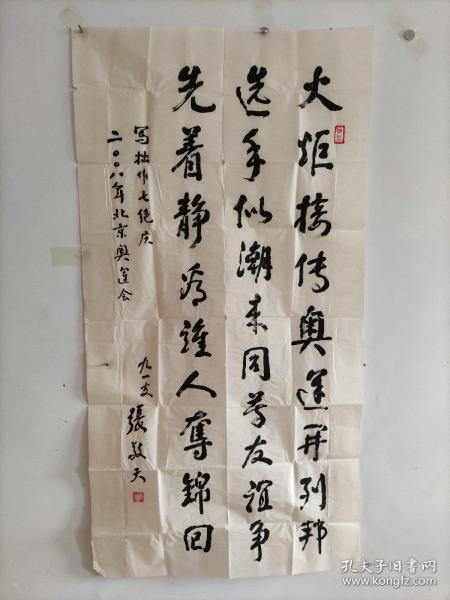 火炬接传奥運开列邦
选手似潮来同友誼争
先着静看誰人奪錦回
写拙作七绝庆
二〇〇八年北京奥運会
九一叟 張敬天
孔夫子旧书网
www.kongfz.com